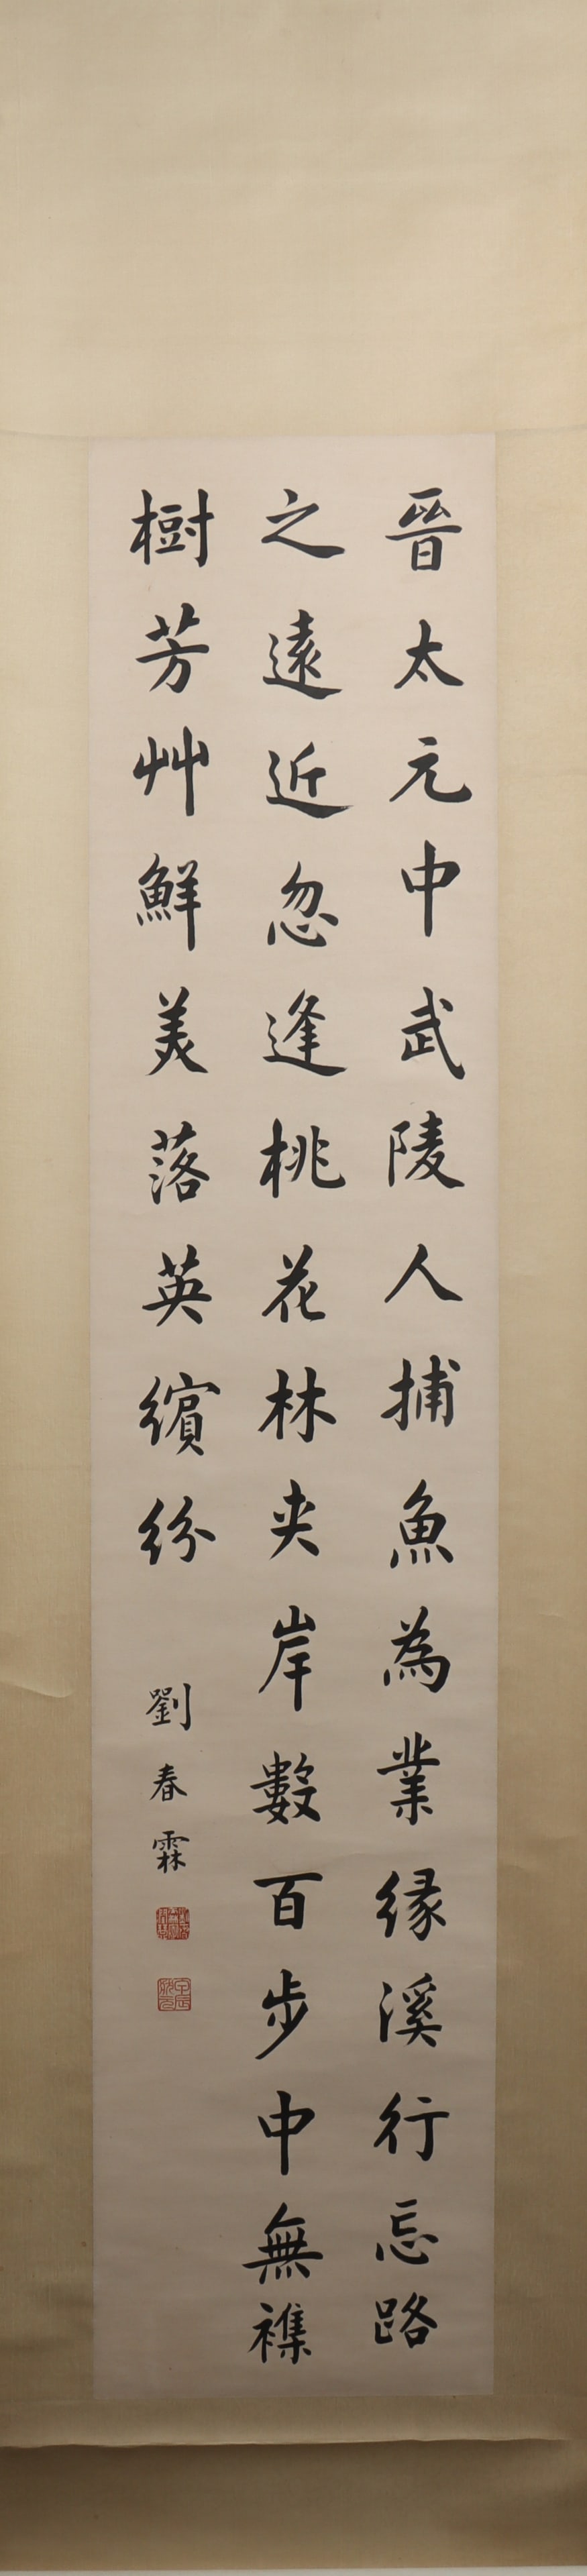 晉太元中武陵人捕魚為業緣溪行忘路
之遠近忽逢桃花林夾岸數百步中無襍
樹芳艸鮮美落英繽紛
劉春霖